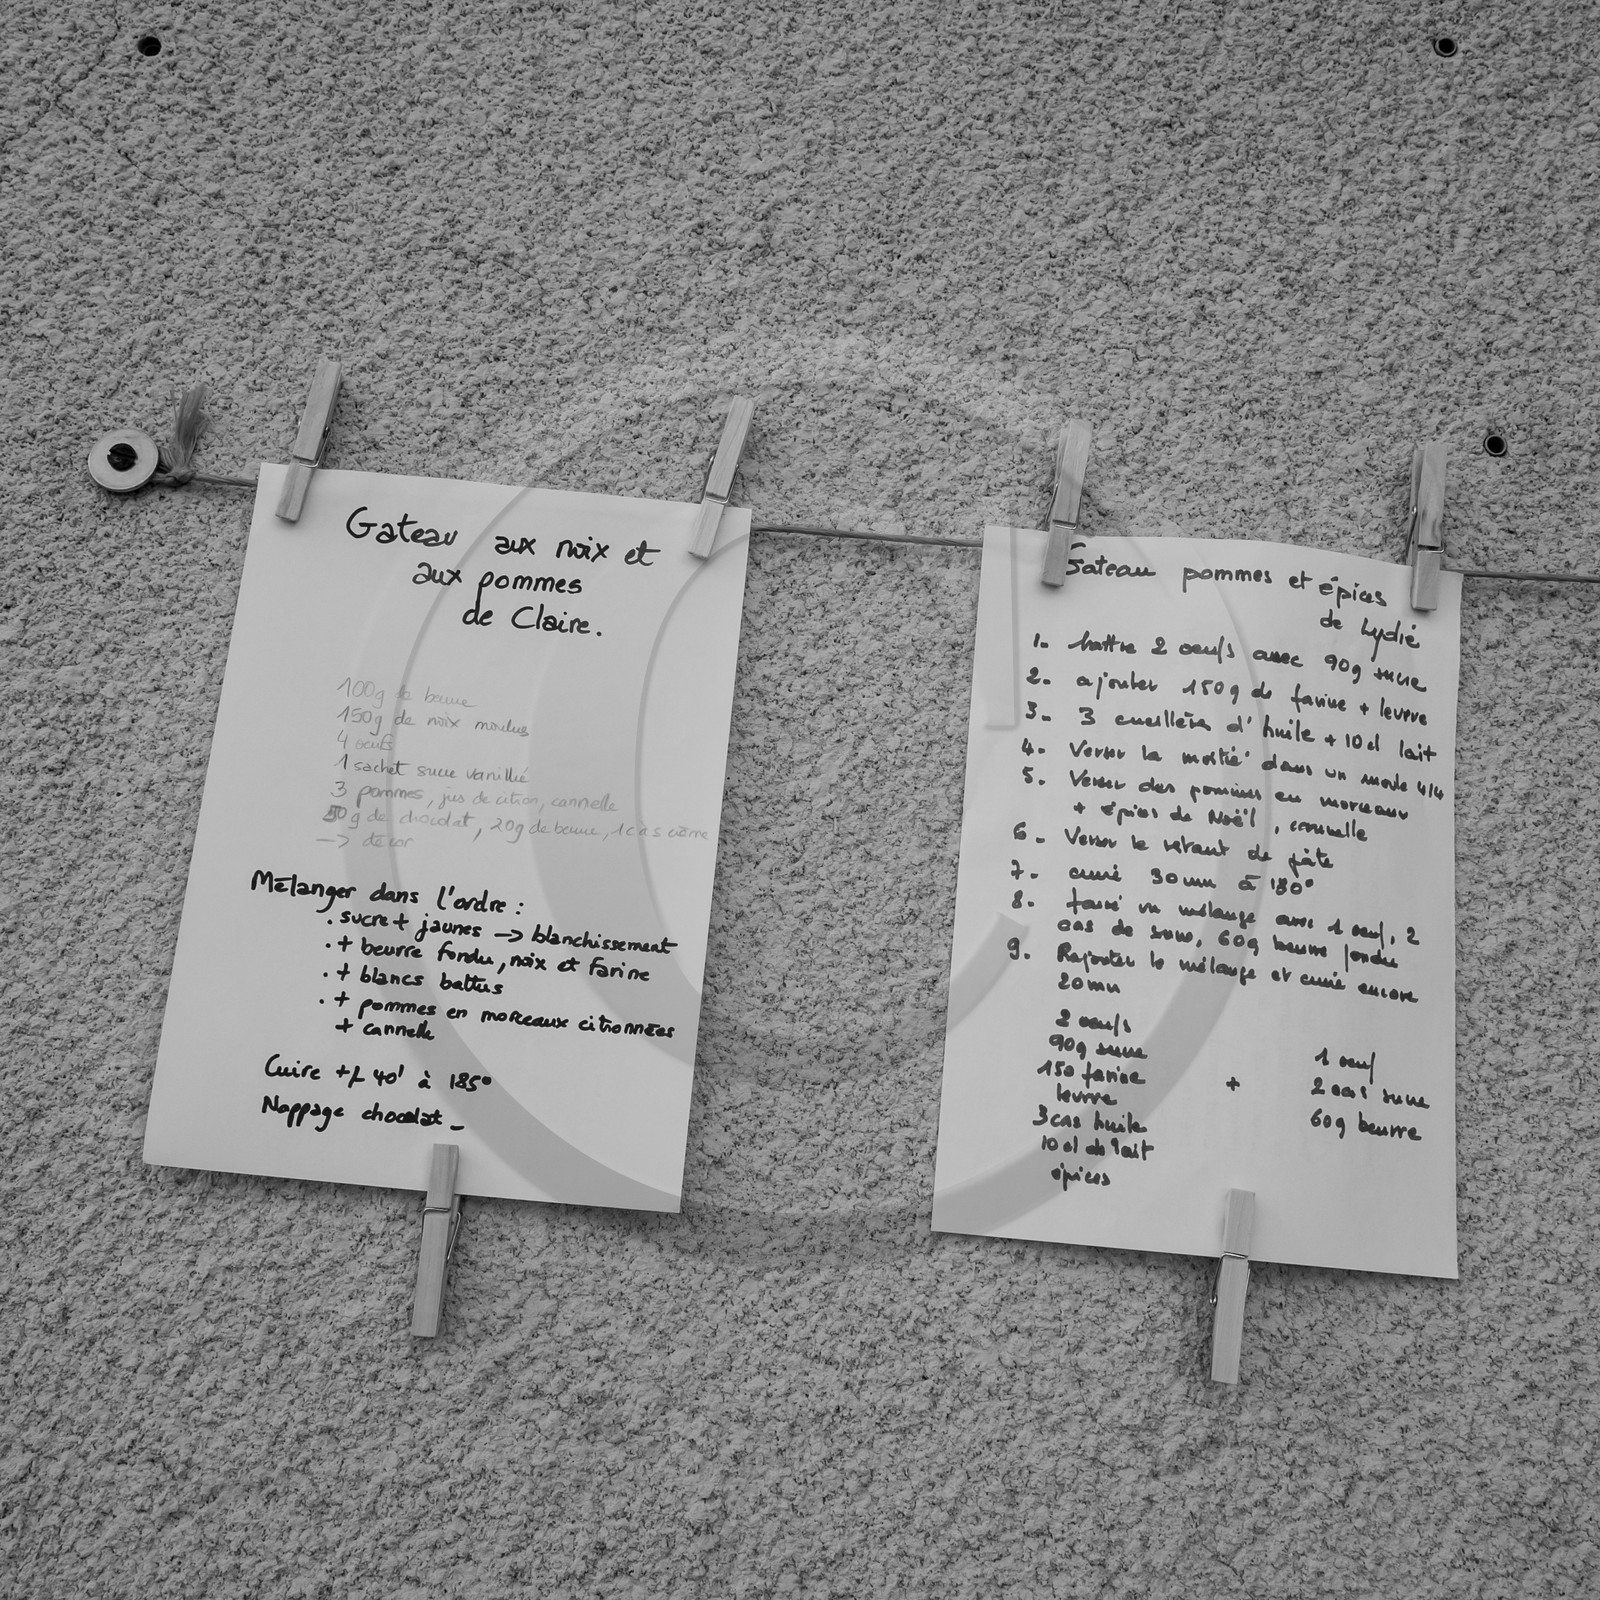 Gateau aux noix et
aux pommes
de Claire.
100g de beurre
150g de noix moulues
4 oeufs
1 sachet sucre vanillé
3 pommes, jus de citron, cannelle
50g de chocolat, 20g de beurre, 1 c a s crème
-> décor
Mélanger dans l'ordre :
. sucre + jaunes -> blanchissement
. + beurre fondu, noix et farine
. + blancs battus
. + pommes en morceaux citronnées
+ cannelle
Cuire +/- 40' à 185°
Nappage chocolat _
Gateau pommes et épices
de Lydie
1. battre 2 oeufs avec 90g sucre
2. ajouter 150g de farine + levure
3. 3 cuillères d'huile + 10cl lait
4. Verser la moitié dans un moule
5. Verser des pommes en morceaux
+ épices de Noël, cannelle
6. Verser le restant de pâte
7. cuire 30mn à 180°
8. faire un mélange avec 1 oeuf, 2
cas de sucre, 60g beurre fondu
9. Rajouter le mélange et cuire encore
20mn
2 oeufs
90g sucre
150 farine
levure
3cas huile
10cl de lait
épices
+
1 oeuf
2 cas sucre
60g beurre